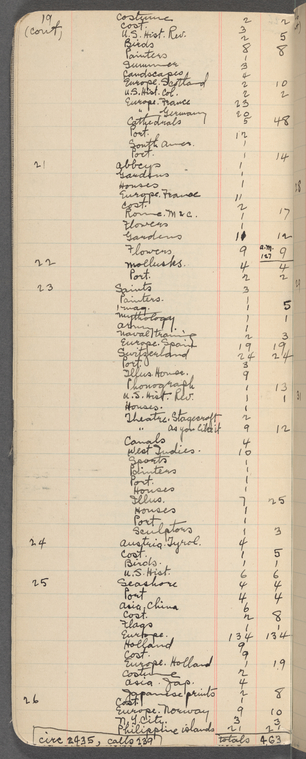 19 Costume 2 2
(cont.) Cost. 3
U.S. Hist. Rev. 2 5
Birds 8 8
Painters 1
Summer 3
Landscapes 4
Europe. Scotland 2 10
U.S. Hist. Col. 2 2
Europe. France 23
" Germany 20
Cathedrals 5 48
Port. 12
South Amer. 1
Port. 1 14
21 Abbeys 1
Gardens 1
Houses 1
Europe. France 11
Cost. 2
Roma. M & C. 1 17
Flowers 1
Gardens 12
Flowers 9 a.m. 127 9
22 Mollusks. 4 4
Port. 2 2
23 Saints 3
Painters. 1
1 5
Mythology 1 1
1 1
Naval Training 2 3
Europe. Spain 19 19
Switzerland 24 24
Port 3
Illus. Houses. 9
Phonograph 1 13
U.S. Hist. Rev. 1 1
Houses. 1
Theatre. Stagecraft 2
" As you like it 9 12
Canals 4
West Indies. 10
Sports 1
Painters 1
Port. 1
Houses 1
Illus. 7 25
Houses 1
Port 1
Sculptors 1 3
24 Austria. Tyrol. 4
Cost. 1 5
Birds. 1 1
U.S. Hist. 6 6
25 Seashore 4 4
Port 4 4
Asia. China 6
Cost. 2 8
Flags 1 1
Europe. 134 134
Holland 9
Cost. 9
Europe. Holland 1 19
Costume 2
Asia. Jap. 4
Japanese prints 2 8
26 Cost. 1
Europe. Norway 9 10
N.Y. City 3 3
Philippine islands 21 21
circ 2435, calls 289 totals 463